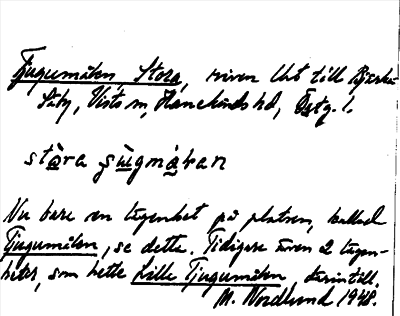 Tjugumålen Stora, riven lht till Bjärka-
Säby, Vists sn, Hanekinds hd, Östg. l.
stò̀ra ʂùgmå̀ḷan
Nu bare en lägenhet på platsen, kallad
Tjugumålen, se dette. Tidigare även 2 lägen-
heter, som hette Lille Tjugumålen, därintill.
M. Nordlund 1948.